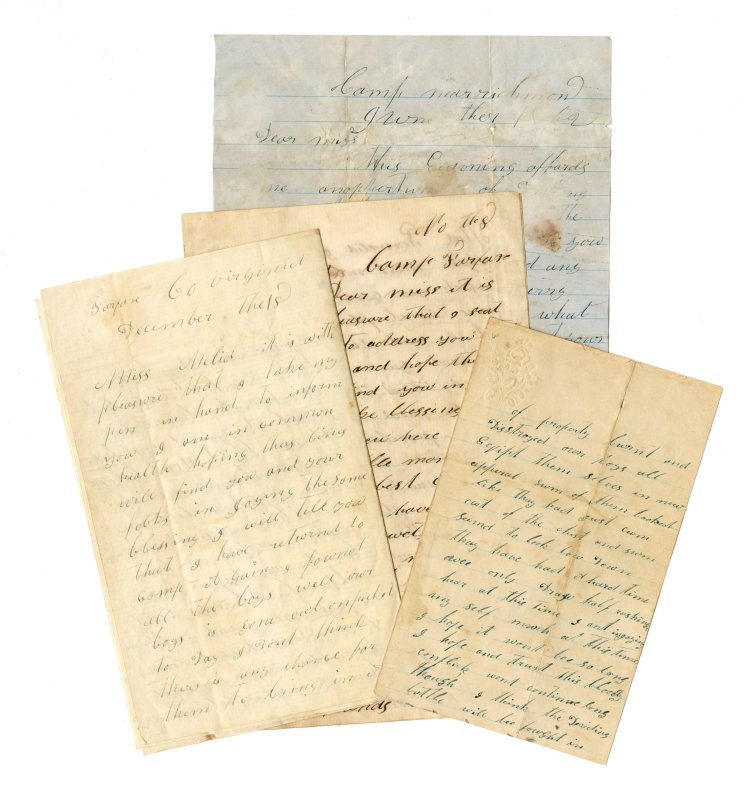 Camp narrichmond
June the 1 62
Dear miss
this Evening affords
me anopportun of
the
you
and any
what
No the 18
Camp Farfax
Dear miss it is
pleasure that I seat
to address you
and hope the
find you in
the blessing
now here
best
have
Farfax Co virginia
December the 18
Miss Melid it is with
pleasure that I take my
pen in hand to inform
you I am in common
health hopeing thes lines
will find you and your
folks in Joying the same
blessing I will tell you
that I have returnd to
Camp a gain & found
all the boys well our
boys is gone out on picket
to Day I Dont think
thers is any chance for
them to bring in
of property burnt and
Distroyed our boys all
Eqipt them selves in new
apparal sum of them looked
like they had Just cum
out of the and sum
semed to look low Down
they have had a hard time
over only Draw half rashing
hear at this time I ant injoying
my self much at this time
I hope it wont bee so long
I hope and trust this bloody
conflict wont continue long
though I think the Deciding
battle will be fought in